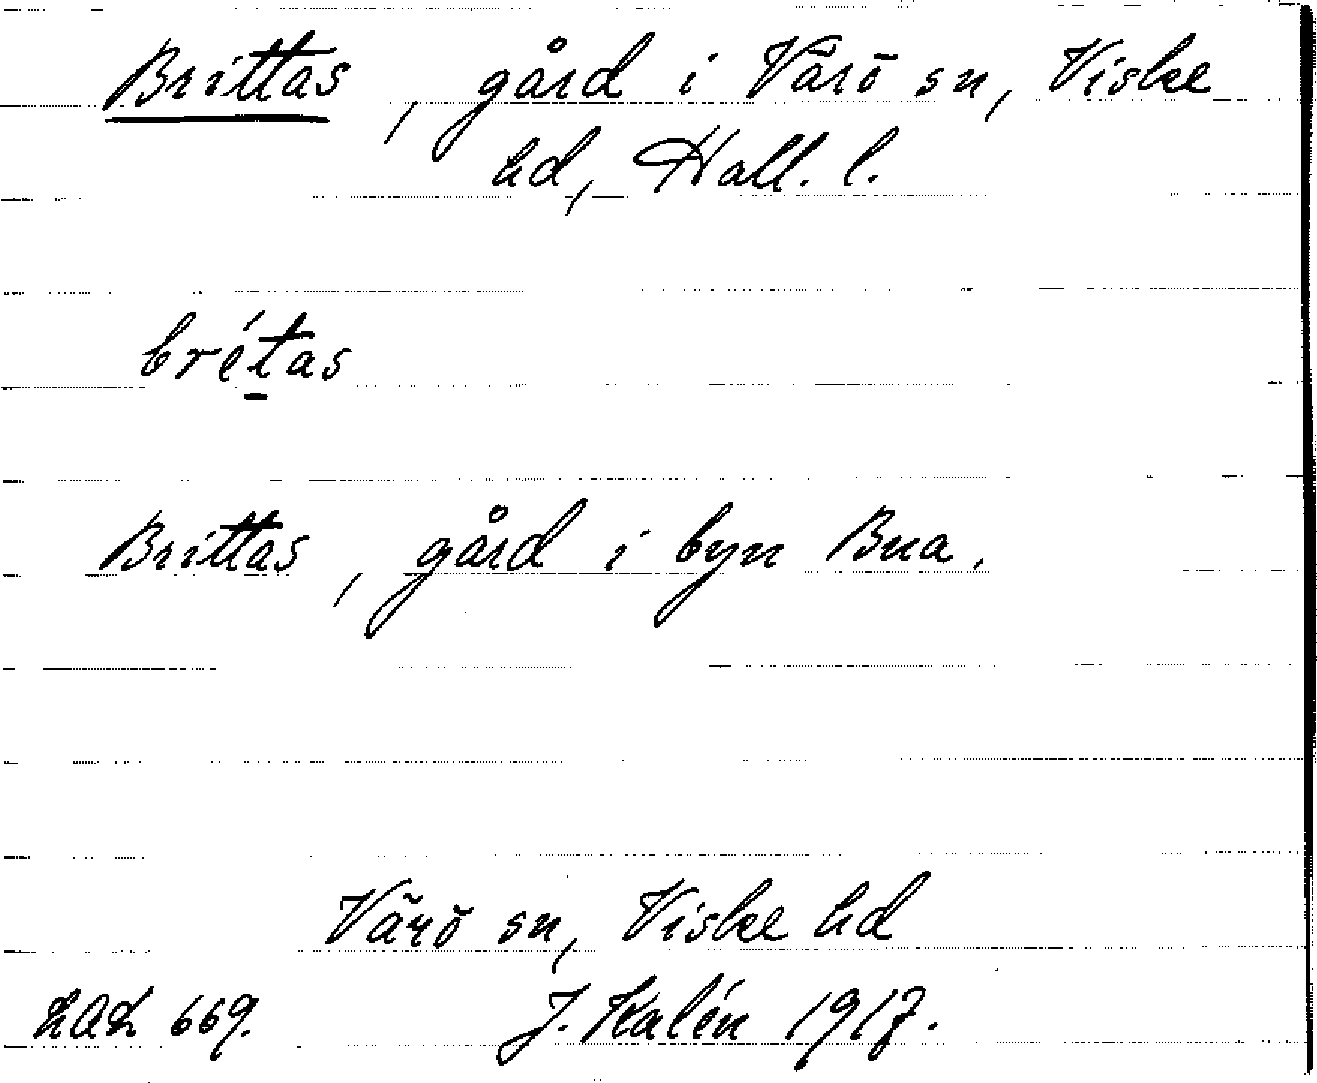 Brittas, gård i Värö sn, Viske
hd, Hall. l.
brétas
Brittas, gård i byn Bua.
Värö sn, Viske hd
LAL 669. J. Kalén 1917.